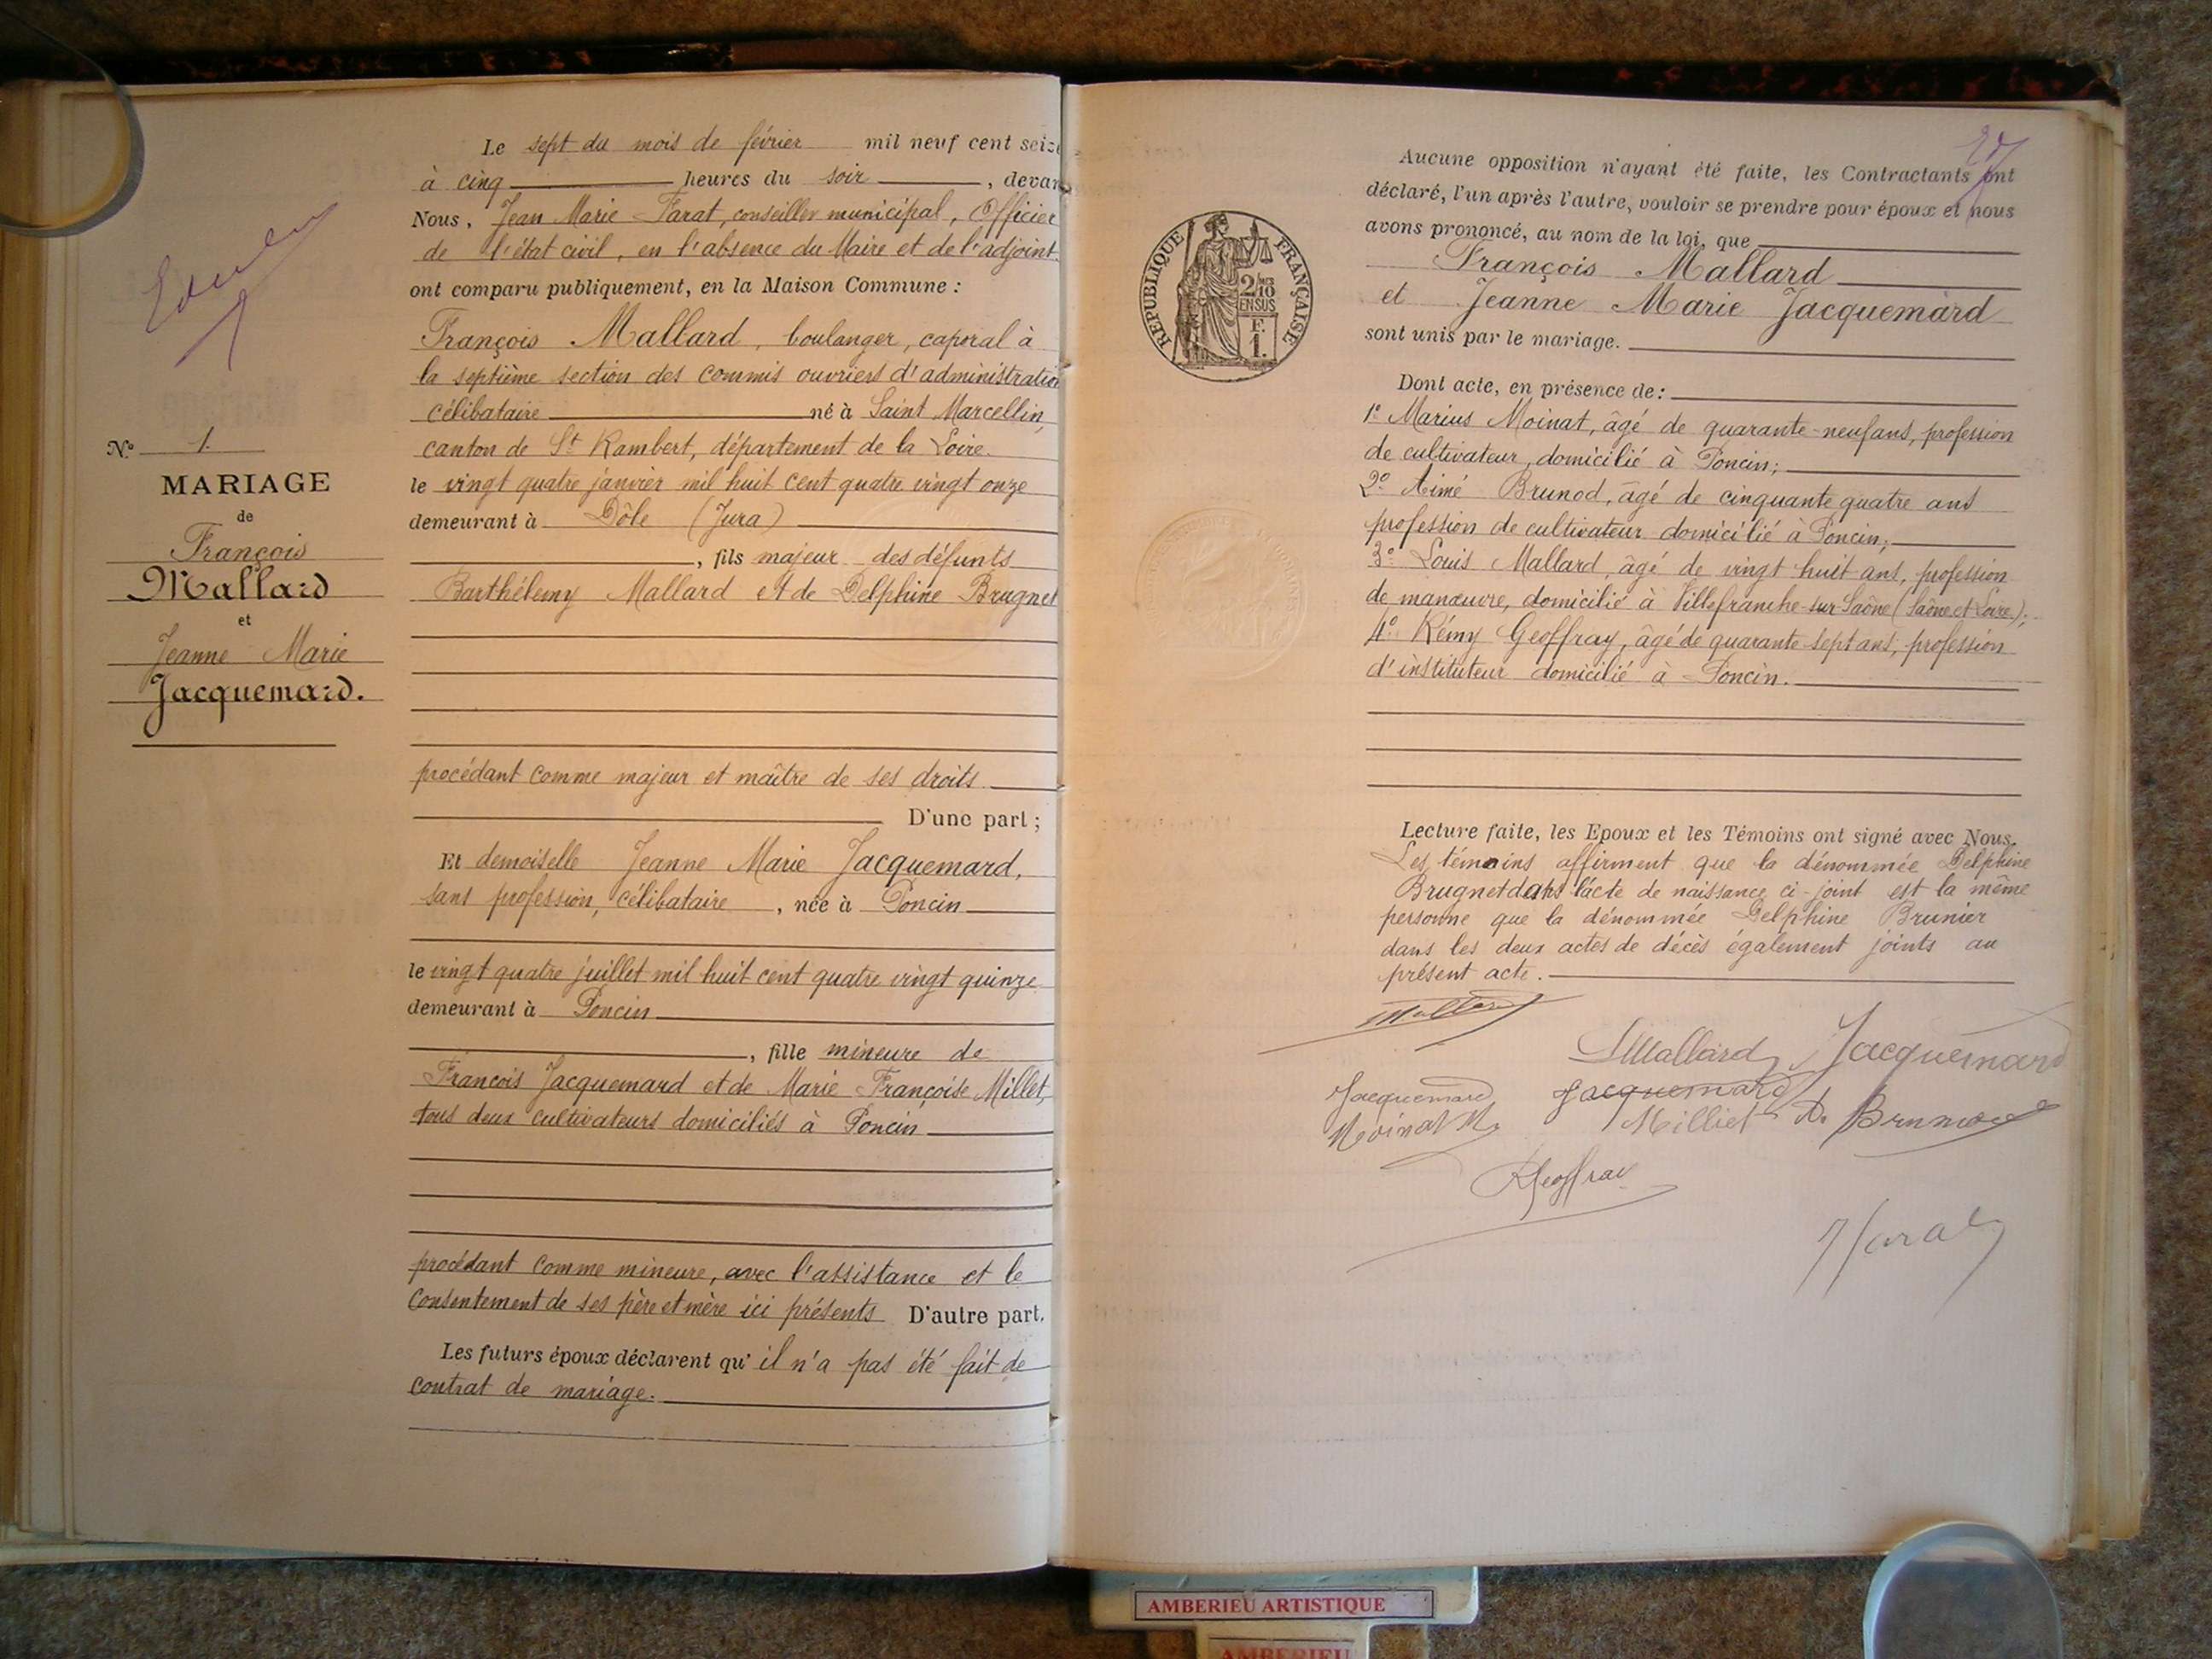 Nº 1.
MARIAGE
de
François
Mallard
et
Jeanne Marie
Jacquemard.
Le sept du mois de février mil neuf cent seize
à cinq heures du soir, devan
Nous, Jean Marie Tarat, conseiller municipal, Officier
de l'état civil, en l'absence du Maire et de l'adjoint.
ont comparu publiquement, en la Maison Commune :
François Mallard, boulanger, caporal à
la septième section des commis ouvriers d'administration
célibataire né à Saint Marcellin,
canton de St Rambert, département de la Loire.
le vingt quatre janvier mil huit cent quatre vingt onze
demeurant à Dôle (Jura)
, fils majeur des défunts
Barthélemy Mallard et de Delphine Brugnet
procédant comme majeur et maître de ses droits
D'une part ;
Et demoiselle Jeanne Marie Jacquemard,
sans profession, célibataire, née à Poncin
le vingt quatre juillet mil huit cent quatre vingt quinze
demeurant à Poncin
, fille mineure de
François Jacquemard et de Marie Françoise Millet,
tous deux cultivateurs domiciliés à Poncin
procédant comme mineure, avec l'assistance et le
consentement de ses père et mère ici présents D'autre part.
Les futurs époux déclarent qu'il n'a pas été fait de
contrat de mariage.
RÉPUBLIQUE FRANÇAISE
2/10
EN SUS
F.
1.
Aucune opposition n'ayant été faite, les Contractants ont
déclaré, l'un après l'autre, vouloir se prendre pour époux et nous
avons prononcé, au nom de la loi, que
François Mallard
et Jeanne Marie Jacquemard
sont unis par le mariage.
Dont acte, en présence de :
1º Marius Moinat, âgé de quarante-neuf ans, profession
de cultivateur, domicilié à Poncin;
2º Aimé Brunod, âgé de cinquante quatre ans
profession de cultivateur domicilié à Poncin;
3º Louis Mallard, âgé de vingt huit ans, profession
de manœuvre, domicilié à Villefranche-sur-Saône (Saône et Loire);
4º Rémy Geoffray, âgé de quarante sept ans, profession
d'instituteur domicilié à Poncin.
Lecture faite, les Epoux et les Témoins ont signé avec Nous.
Les témoins affirment que la dénommée Delphine
Brugnet dans l'acte de naissance ci-joint est la même
personne que la dénommée Delphine Brunier
dans les deux actes de décès également joints au
présent acte.
Mallard
LMallard Jacquemard
Jacquemard Jacquemard
Moinat M. Milliet A. Brunod
RGeoffray
Tarat
AMBERIEU ARTISTIQUE
AMBERIEU